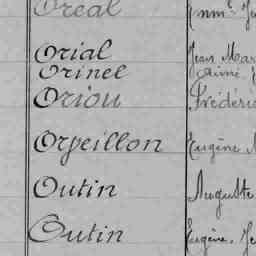 Oréal
Orial Jean Mar
Orinel Aimé
Oriou Frédéric
Orpeillon Eugène
Outin Auguste
Outin Eugène. Je